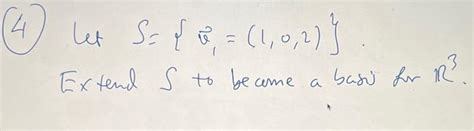 ④ Let S = { v⃗₁ = (1,0,2) } .
Extend S to become a basis for ℝ³.